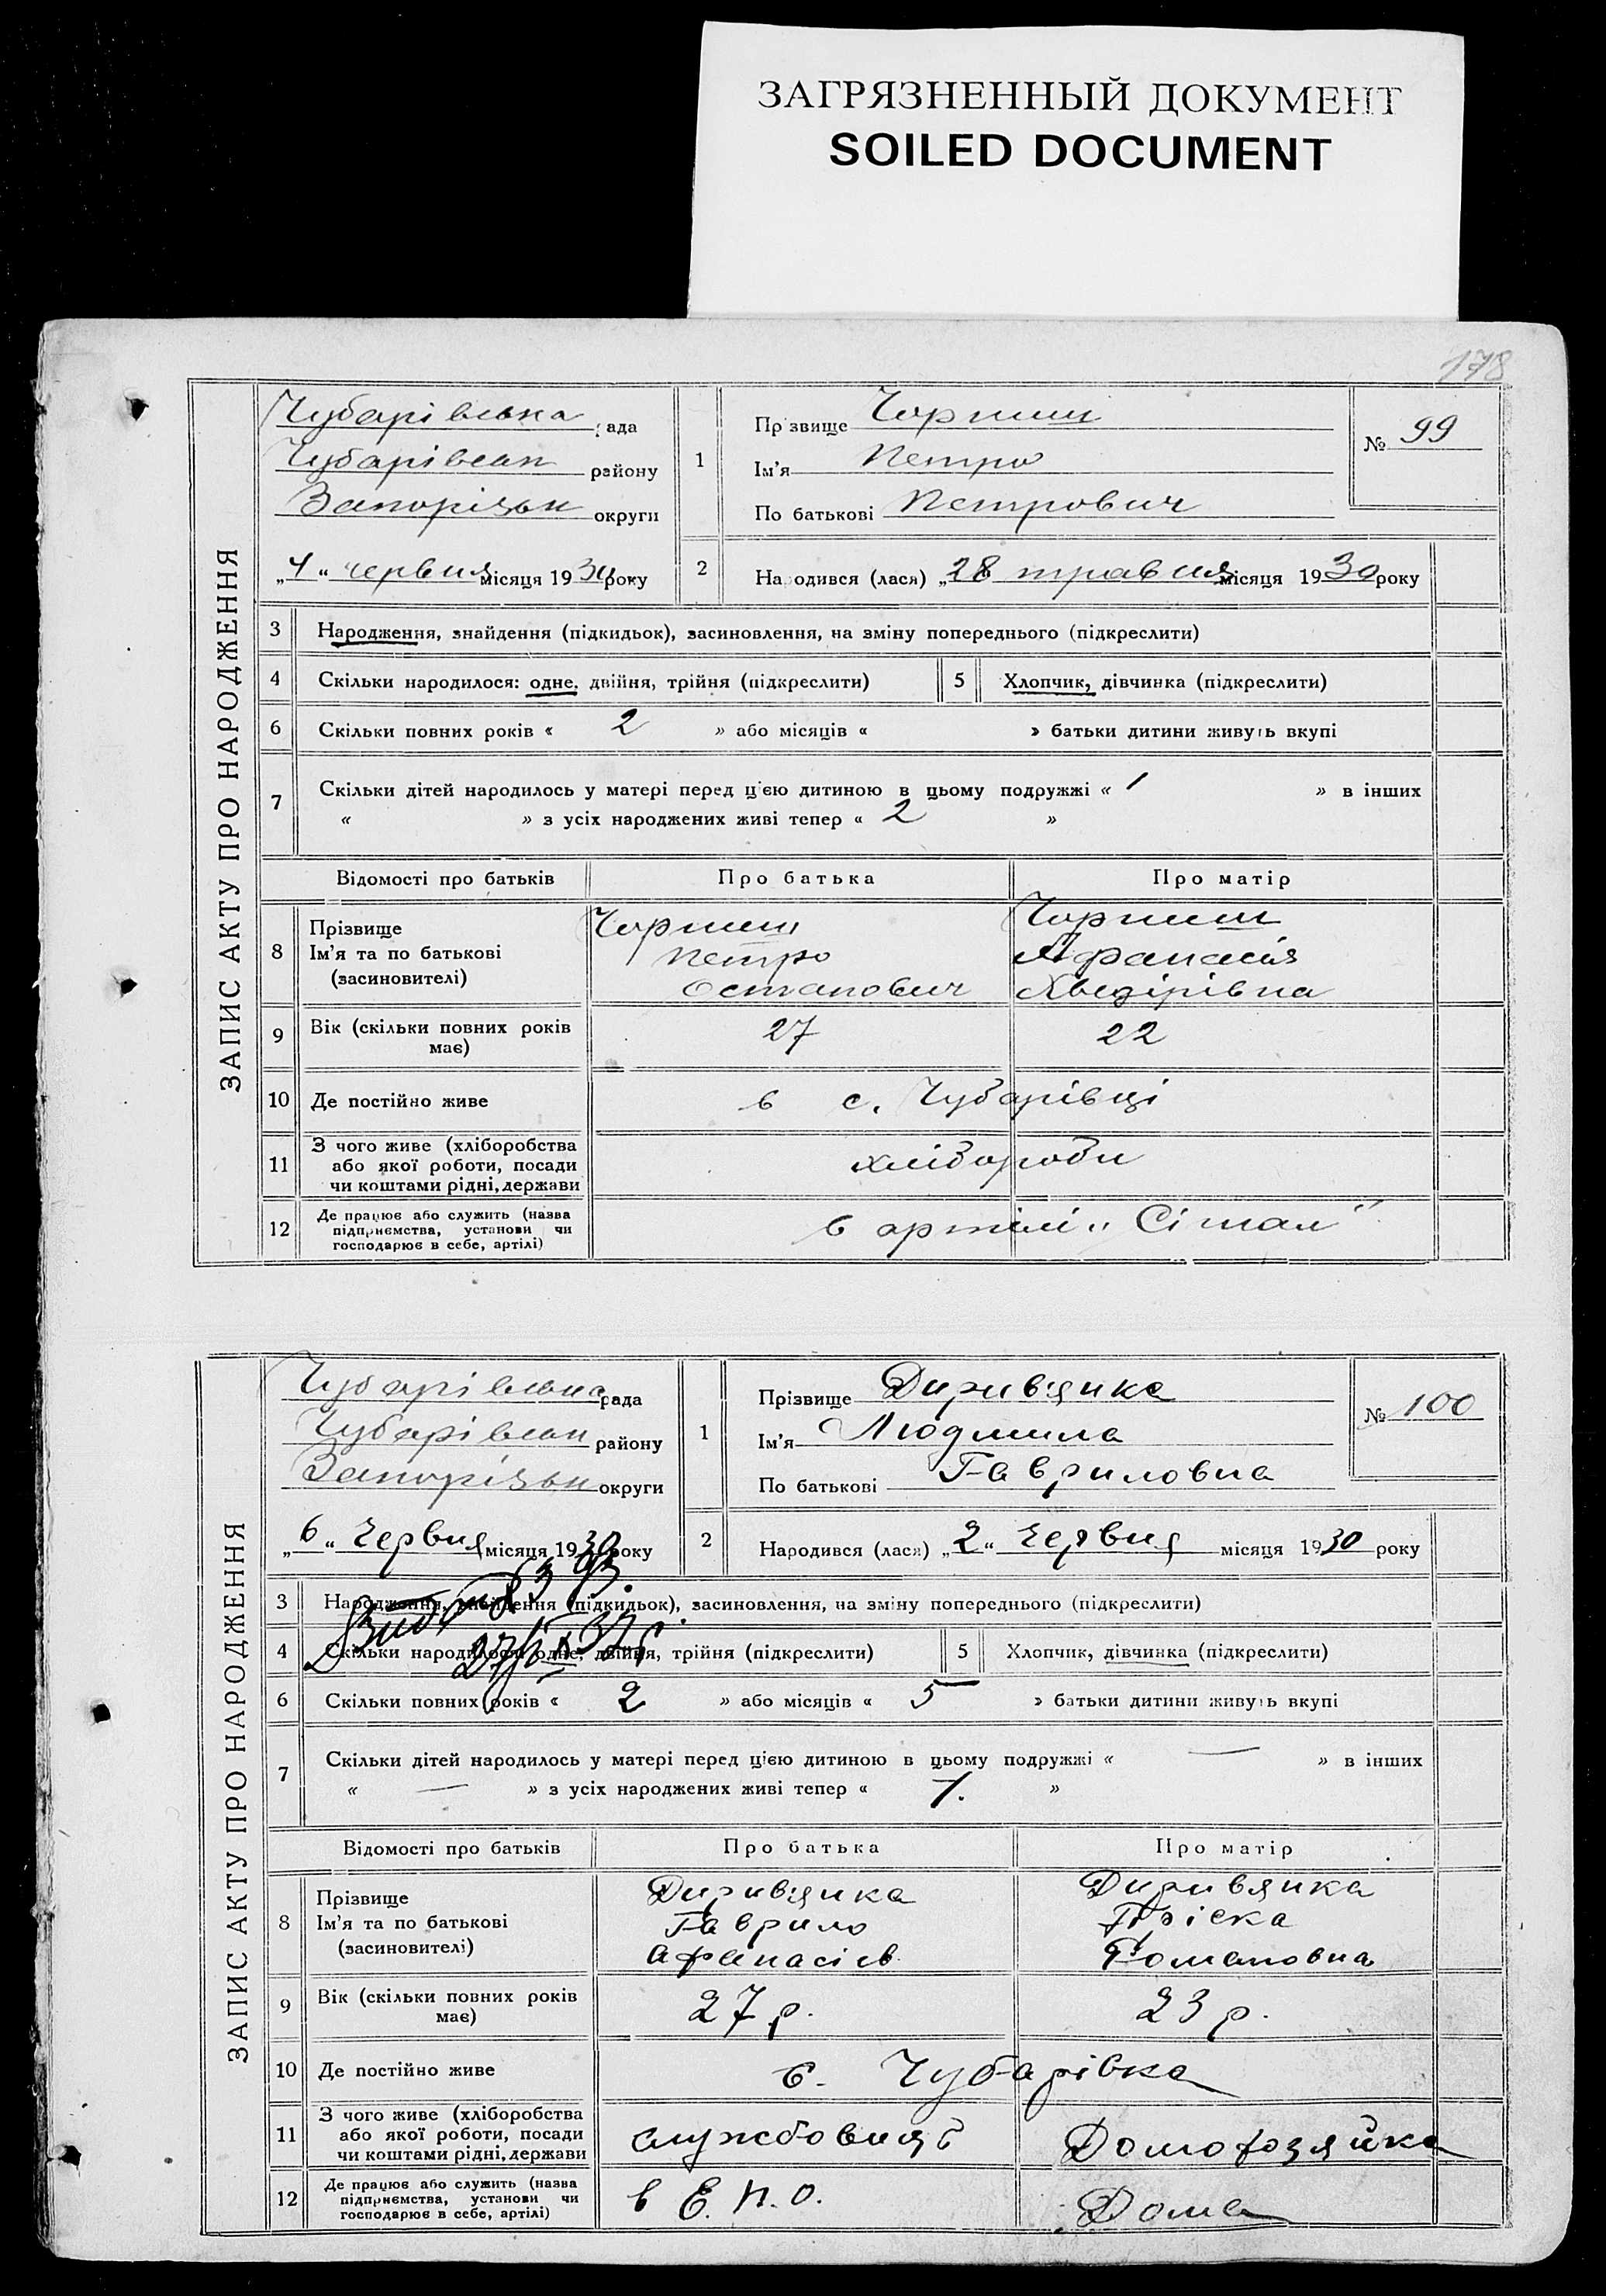 ЗАГРЯЗНЕННЫЙ ДОКУМЕНТ
SOILED DOCUMENT
178
ЗАПИС АКТУ ПРО НАРОДЖЕННЯ
Чубарівська рада
Чубарівськ району
Запорізьк округи
„4“ червня місяця 1930 року
1
Прізвище Чорниш
Ім'я Петро
По батькові Петрович
№ 99
2 Народився (лася) „28 травня місяця 1930 року
3 Народження, знайдення (підкидьок), засиновлення, на зміну попереднього (підкреслити)
4 Скільки народилося: одне, двійня, трійня (підкреслити) 5 Хлопчик, дівчинка (підкреслити)
6 Скільки повних років « 2 » або місяців « » батьки дитини живуть вкупі
7 Скільки дітей народилось у матері перед цією дитиною в цьому подружжі « 1 » в інших
« » з усіх народжених живі тепер « 2 »
Відомості про батьків Про батька Про матір
8 Прізвище Чорниш Чорниш
Ім'я та по батькові Петро Афанасія
(засиновителі) Остапович Хведірівна
9 Вік (скільки повних років має) 27 22
10 Де постійно живе в с. Чубарівці
11 З чого живе (хліборобства
або якої роботи, посади хлібороби
чи коштами рідні, держави
12 Де працює або служить (назва
підприємства, установи чи в артілі „Сітал"
господарює в себе, артілі)
ЗАПИС АКТУ ПРО НАРОДЖЕННЯ
Чубарівська рада
Чубарівськ району
Запорізьк округи
„6“ Червня місяця 1930 року
1
Прізвище Диривянка
Ім'я Людмила
По батькові Гавриловна
№ 100
2 Народився (лася) „2“ Червня місяця 1930 року
3 Народження, знайдення (підкидьок), засиновлення, на зміну попереднього (підкреслити)
4 Скільки народилося: одне, двійня, трійня (підкреслити) 5 Хлопчик, дівчинка (підкреслити)
6 Скільки повних років « 2 » або місяців « 5 » батьки дитини живуть вкупі
7 Скільки дітей народилось у матері перед цією дитиною в цьому подружжі « — » в інших
« — » з усіх народжених живі тепер « 1. »
Відомості про батьків Про батька Про матір
8 Прізвище Диривянка Диривянка
Ім'я та по батькові Гаврило Пріска
(засиновителі) Афанасієв. Романовна
9 Вік (скільки повних років має) 27 р. 23 р.
10 Де постійно живе с. Чубарівка
11 З чого живе (хліборобства
або якої роботи, посади Домохозяйка
чи коштами рідні, держави
12 Де працює або служить (назва
підприємства, установи чи в Є.П.О. Дома
господарює в себе, артілі)